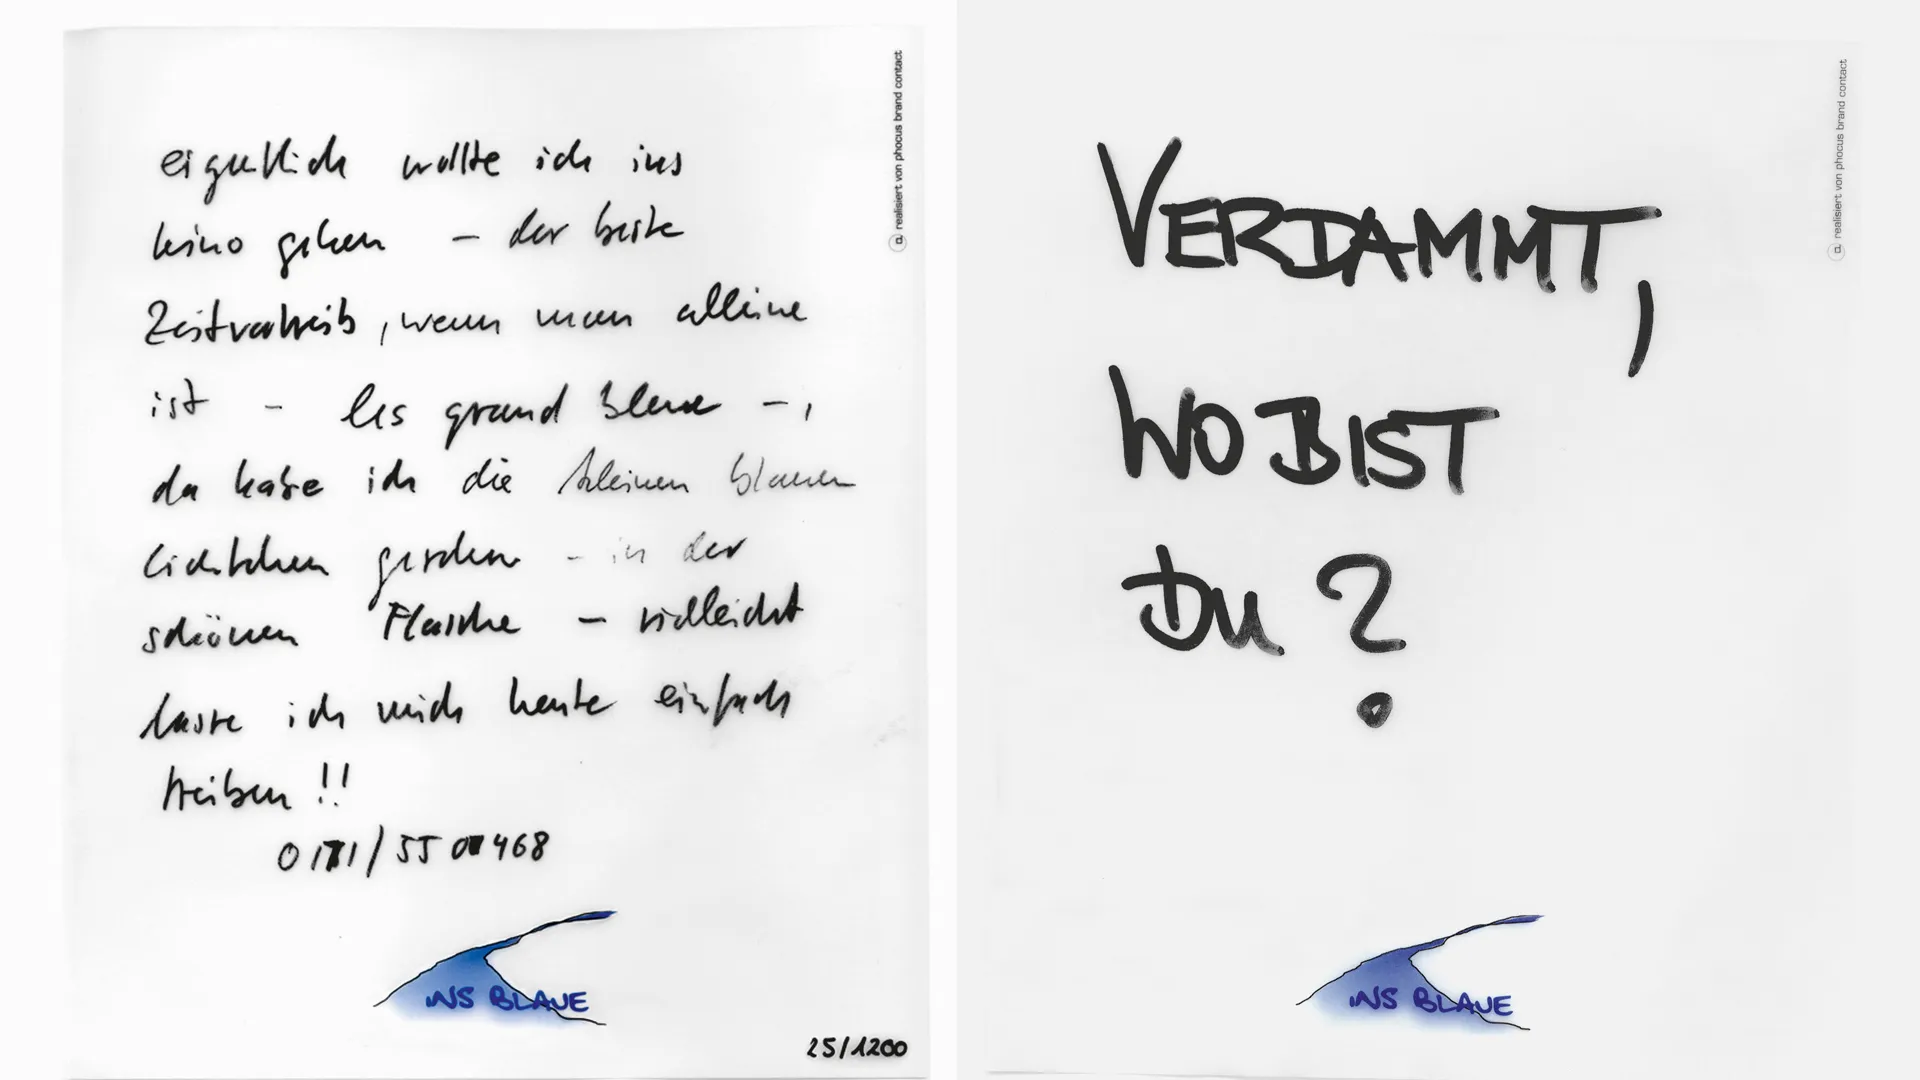 eigentlich wollte ich ins
kino gehen – der beste
Zeitvertreib, wenn man alleine
ist – les grand bleue –,
da habe ich die kleinen blauen
Lichtchen gesehen – in der
schönen Flasche – vielleicht
lasse ich mich heute einfach
treiben !!
0171/55 0 468
INS BLAUE
25/1200
a. realisiert von phocus brand contact
VERDAMMT,
WO BIST
DU ?
INS BLAUE
a. realisiert von phocus brand contact